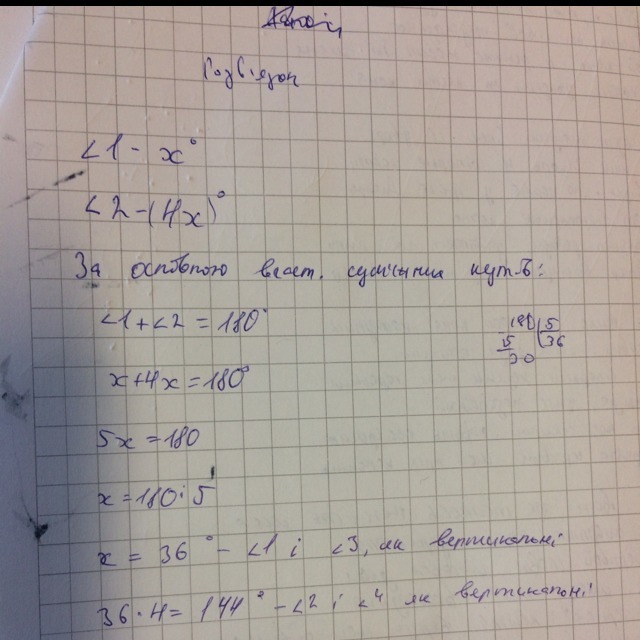 Розв'язок
<1 - x°
<2 - (4x)°
За основною власт. суміжних кутів:
<1 + <2 = 180°
x + 4x = 180°
5x = 180
x = 180 : 5
x = 36° - <1 і <3, як вертикальні
36 · 4 = 144° - <2 і <4 як вертикальні
180 5
5 36
30